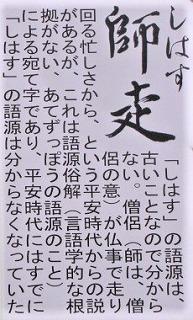 しはす
師走
「しはす」の語源は、
古いことなので分から
ない。僧侶（師は、僧
侶の意）が仏事で走り
回る忙しさから、という平安時代からの説
があるが、これは語源俗解（言語学的な根
拠がない、あてずっぽうの語源のこと）
による宛て字であり、平安時代にはすでに
「しはす」の語源は分からなくなっていた